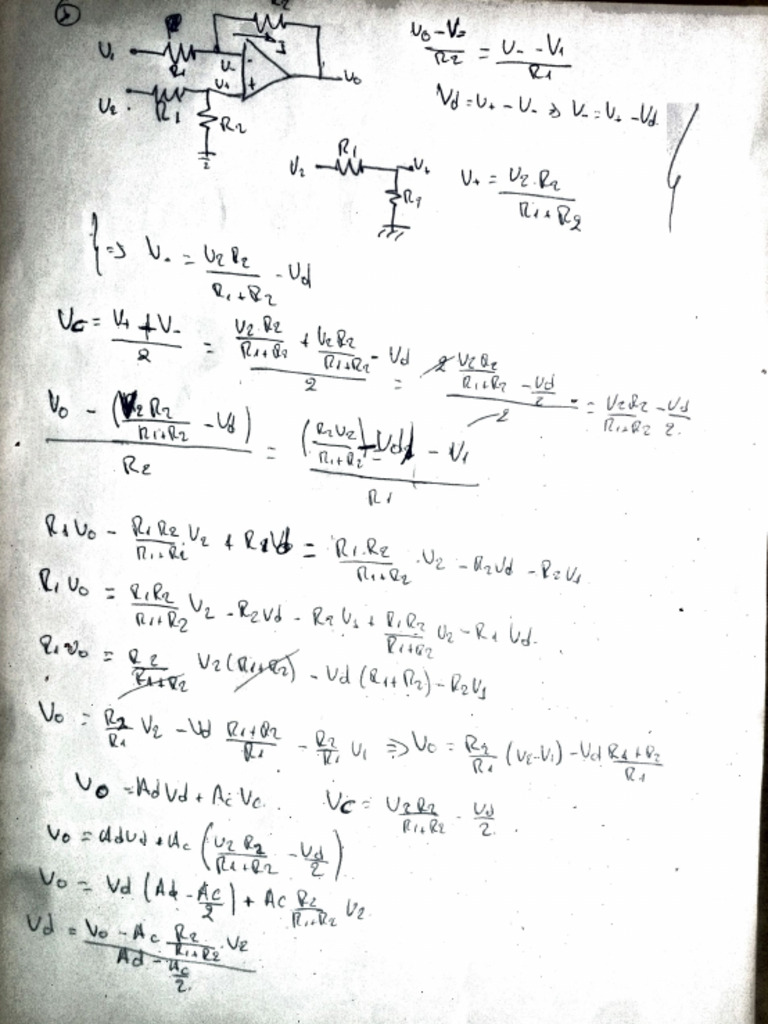 5
R2
V1 R1 V- I
V+ V0
V2 R1 R2
(V0 - V-)/R2 = (V- - V1)/R1
Vd = V+ - V- => V- = V+ - Vd
V2 R1 V+ R2
V+ = (V2·R2)/(R1+R2)
} => V- = (V2 R2)/(R1+R2) - Vd
Vc = (V+ + V-)/2 = ((V2·R2)/(R1+R2) + (V2 R2)/(R1+R2) - Vd)/2 = 2 (V2 R2)/(R1+R2) - Vd/2 / 2 = (V2 R2)/(R1+R2) - Vd/2
(V0 - ((V2 R2)/(R1+R2) - Vd))/R2 = (((R2 V2)/(R1+R2) - Vd) - V1)/R1
R1 V0 - (R1 R2)/(R1+R2) V2 + R1 Vd = (R1·R2)/(R1+R2) · V2 - R2 Vd - R2 V1
R1 V0 = (R1 R2)/(R1+R2) V2 - R2 Vd - R2 V1 + (R1 R2)/(R1+R2) V2 - R1 Vd.
R1 V0 = R2/(R1+R2) V2 (R1+R2) - Vd (R1+R2) - R2 V1
V0 = R2/R1 V2 - Vd (R1+R2)/R1 - R2/R1 V1 => V0 = R2/R1 (V2-V1) - Vd (R1+R2)/R1
V0 = Ad Vd + Ac Vc. Vc = (V2 R2)/(R1+R2) - Vd/2.
V0 = Ad Vd + Ac ((V2 R2)/(R1+R2) - Vd/2)
V0 = Vd (Ad - Ac/2) + Ac R2/(R1+R2) V2
Vd = (V0 - Ac R2/(R1+R2) · V2)/(Ad - Ac/2)